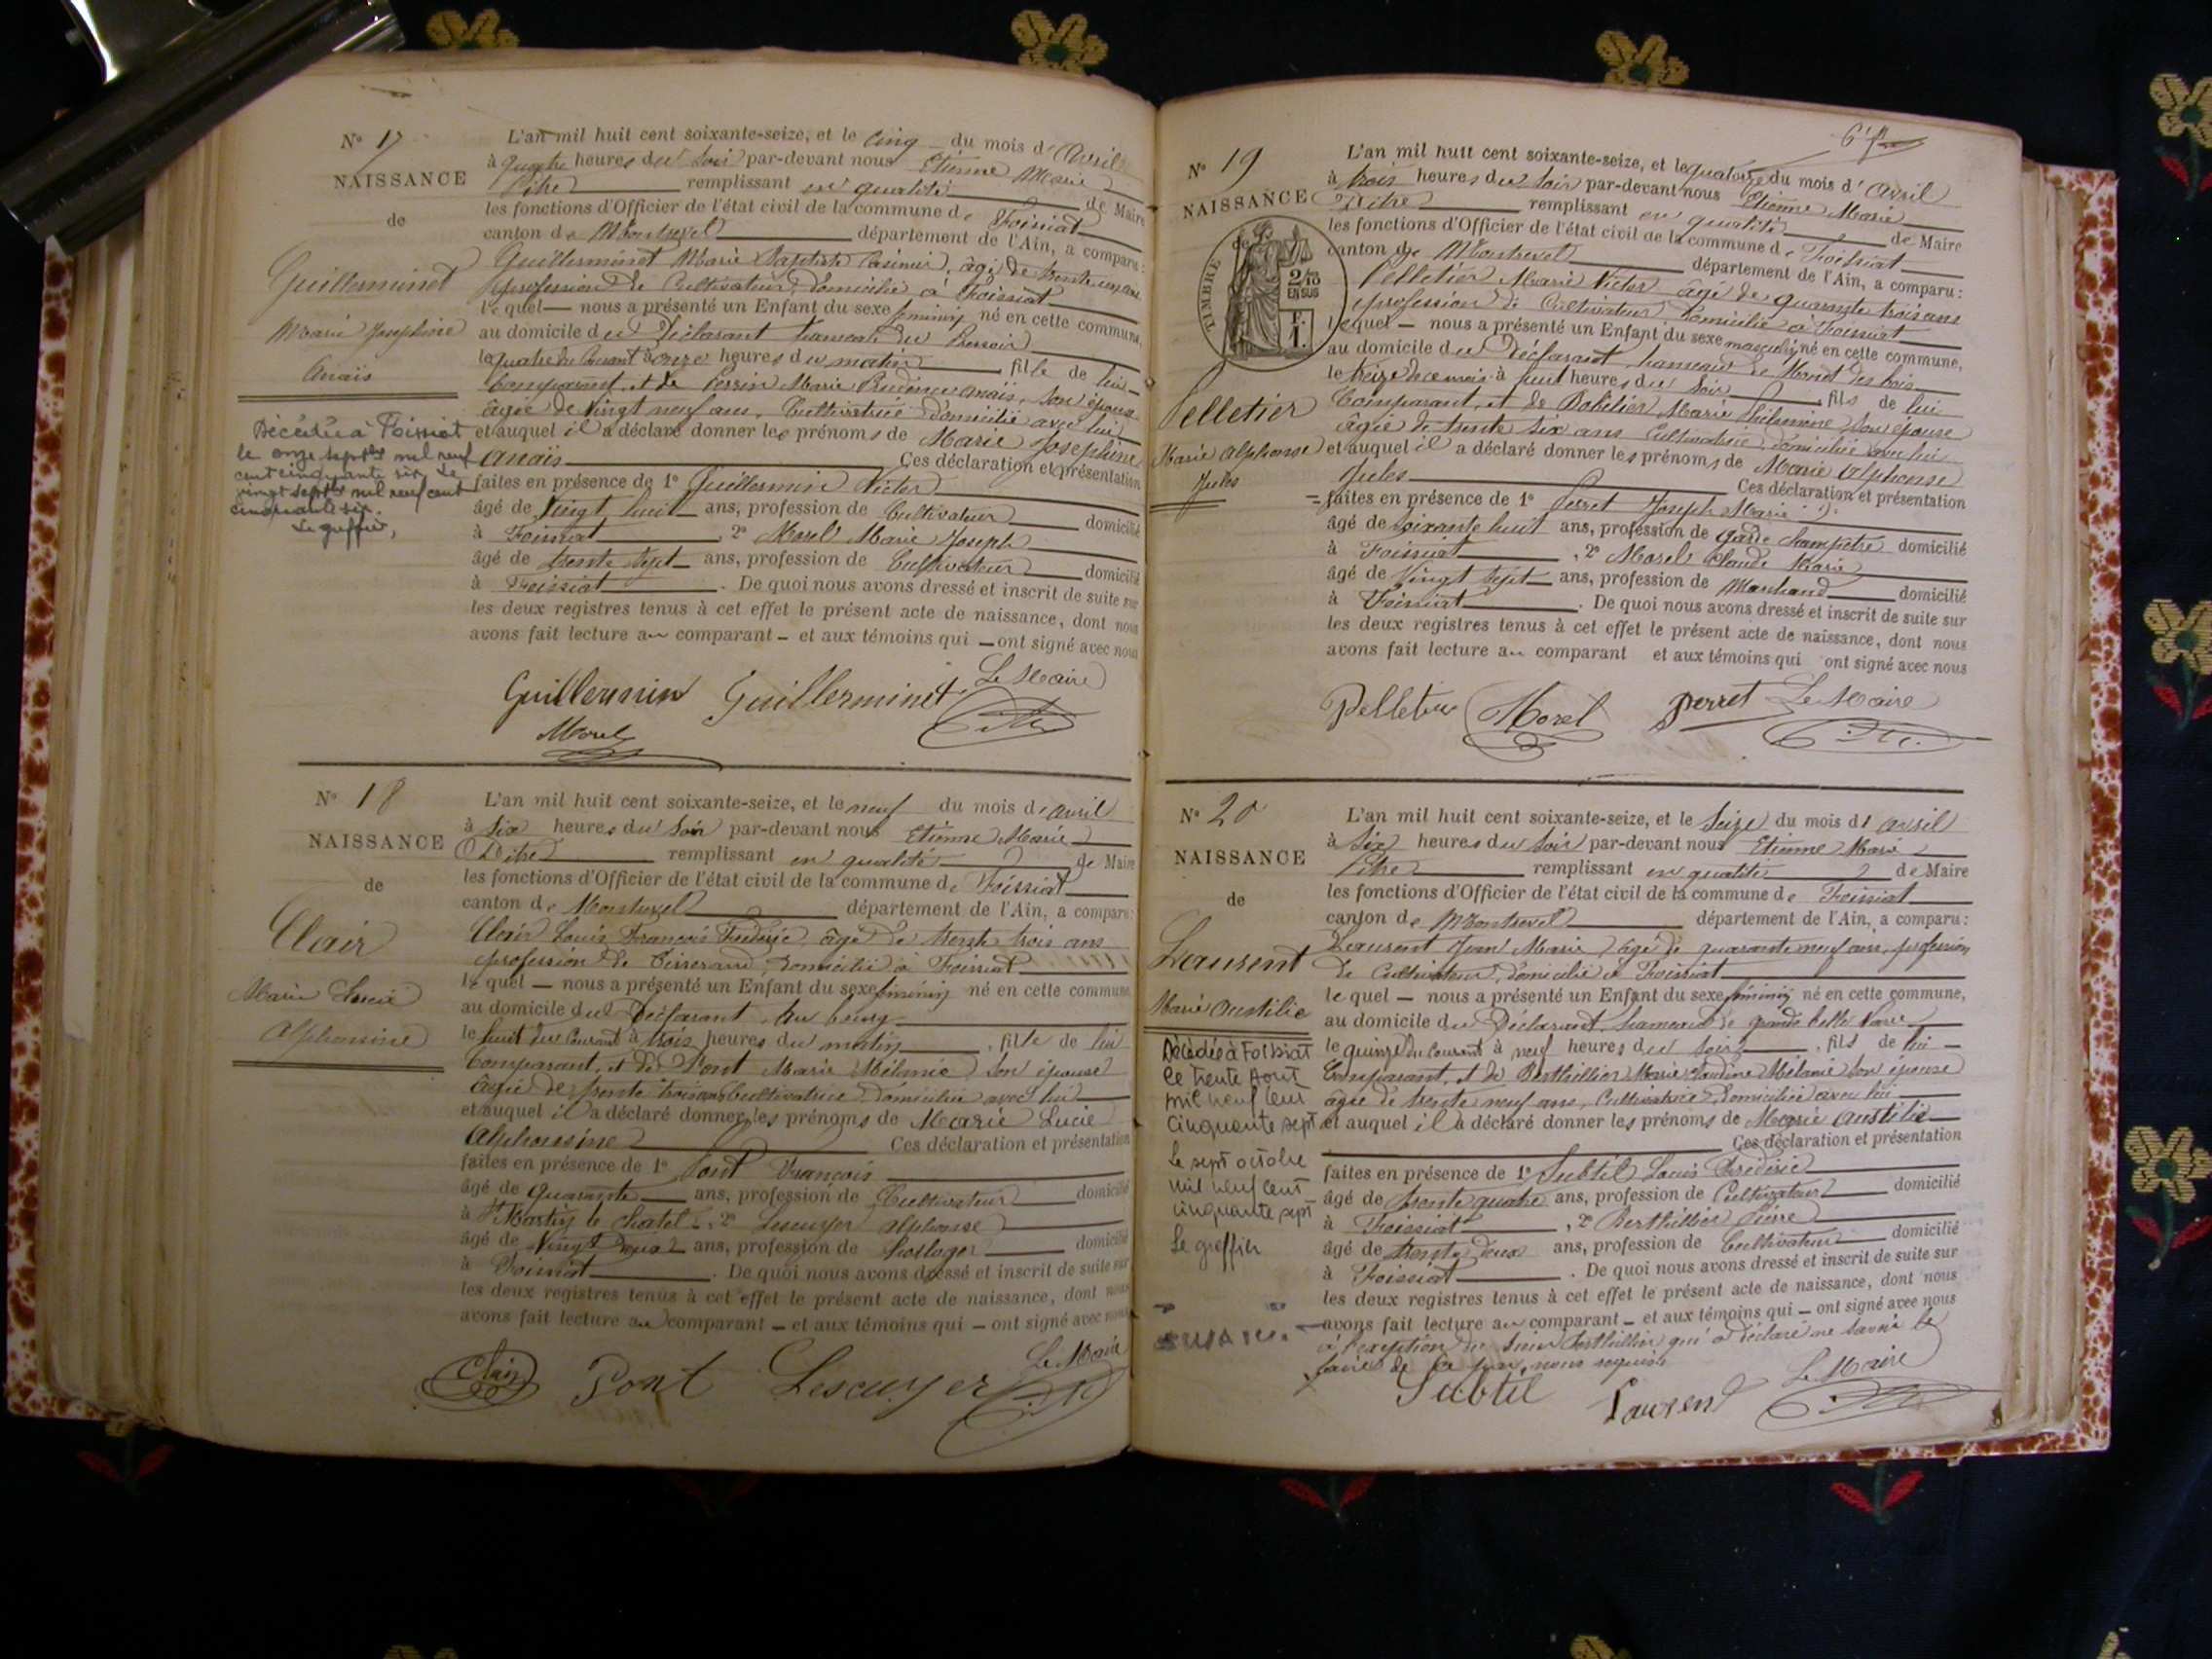 N° 17
NAISSANCE
de
Guillerminet
Marie Josephine
Anaïs
Décédée à Foissiat
le onze septbre mil neuf
cent cinquante six. Le
vingt septbre mil neuf cent
cinquante six.
Le greffier,
L'an mil huit cent soixante-seize, et le cinq du mois d'Avril
à quatre heures du soir par-devant nous Etienne Marie
Pitre remplissant en qualité de Maire
les fonctions d'Officier de l'état civil de la commune de Foissiat
canton de Montrevel département de l'Ain, a comparu:
Guillerminet Marie Baptiste Casimir, âgé de trente un ans
profession de Cultivateur, domicilié à Foissiat
lequel nous a présenté un Enfant du sexe féminin né en cette commune,
au domicile du Déclarant hameau du
le quatre du Courant à onze heures du matin, fille de lui
Comparant, et de Perrin Marie Prudence Anaïs, son épouse
âgée de Vingt neuf ans, Cultivatrice domiciliée avec lui
et auquel il a déclaré donner les prénoms de Marie Josephine
Anaïs Ces déclaration et présentation
faites en présence de 1° Guillermin Victor
âgé de Vingt huit ans, profession de Cultivateur domicilié
à Foissiat, 2° Morel Marie Joseph
âgé de trente sept ans, profession de Cultivateur domicilié
à Foissiat. De quoi nous avons dressé et inscrit de suite sur
les deux registres tenus à cet effet le présent acte de naissance, dont nous
avons fait lecture au comparant – et aux témoins qui – ont signé avec nous
Guillermin Guillerminet Le Maire
Morel
N° 18
NAISSANCE
de
Clair
Marie Lucie
Alphonsine
L'an mil huit cent soixante-seize, et le neuf du mois d'avril
à Six heures du Soir par-devant nous Etienne Marie
Pitre remplissant en qualité de Maire
les fonctions d'Officier de l'état civil de la commune de Foissiat
canton de Montrevel département de l'Ain, a comparu:
Clair Louis François Frédéric, âgé de trente trois ans
profession de Tisserand, domicilié à Foissiat
lequel — nous a présenté un Enfant du sexe féminin né en cette commune
au domicile du Déclarant, au bourg
le huit du Courant à trois heures du matin, fille de lui
Comparant, et de Pont Marie Mélanie, son épouse
âgée de trente trois ans Cultivatrice domiciliée avec lui
et auquel il a déclaré donner les prénoms de Marie Lucie
Alphonsine Ces déclaration et présentation
faites en présence de 1° Pont François
âgé de quarante ans, profession de Cultivateur domicilié
à St Martin le Chatel, 2° Lescuyer Alphonse
âgé de Vingt Deux ans, profession de horloger domicilié
à Foissiat. De quoi nous avons dressé et inscrit de suite sur
les deux registres tenus à cet effet le présent acte de naissance, dont nous
avons fait lecture au comparant – et aux témoins qui – ont signé avec nous
Le Maire
Clair Pont Lescuyer
N° 19
NAISSANCE
de
TIMBRE
2/10
EN SUS
F.
1.
Pelletier
Marie Alphonse
Jules
L'an mil huit cent soixante-seize, et le quatorze du mois d'avril
à trois heures du soir par-devant nous Etienne Marie
Pitre remplissant en qualité de Maire
les fonctions d'Officier de l'état civil de la commune de Foissiat
canton de Montrevel département de l'Ain, a comparu:
Pelletier Marie Victor âgé de quarante trois ans
profession de Cultivateur, domicilié à Foissiat
lequel – nous a présenté un Enfant du sexe masculin né en cette commune,
au domicile du Déclarant, hameau de Monet les bois
le treize de ce mois à huit heures du Soir, fils de lui
Comparant, et de Marie Philomène son épouse
âgée de trente six ans Cultivatrice, domiciliée avec lui
et auquel il a déclaré donner les prénoms de Marie Alphonse
Jules Ces déclaration et présentation
faites en présence de 1° Perret Joseph Marie
âgé de soixante huit ans, profession de garde champêtre domicilié
à Foissiat, 2° Morel Claude Marie
âgé de Vingt sept ans, profession de Marchand domicilié
à Foissiat. De quoi nous avons dressé et inscrit de suite sur
les deux registres tenus à cet effet le présent acte de naissance, dont nous
avons fait lecture au comparant et aux témoins qui ont signé avec nous
Pelletier Morel perret Le Maire
N° 20
NAISSANCE
de
Laurent
Marie Austilie
Décédés à Foissiat
le trente Aout
mil neuf cent
cinquante sept
Le sept octobre
mil neuf cent
cinquante sept
Le greffier
L'an mil huit cent soixante-seize, et le Seize du mois d'avril
à Six heures du Soir par-devant nous Etienne Marie
Pitre remplissant en qualité de Maire
les fonctions d'Officier de l'état civil de la commune de Foissiat
canton de Montrevel département de l'Ain, a comparu:
Laurent Jean Marie âgé de quarante neuf ans, profession
de Cultivateur, domicilié à Foissiat
lequel – nous a présenté un Enfant du sexe féminin né en cette commune,
au domicile du Déclarant, hameau de grande belle
le quinze du Courant à neuf heures du soir, fils de lui –
Comparant, et de Berthillier Marie Claudine Mélanie son épouse
âgée de trente neuf ans, Cultivatrice, domiciliée avec lui
et auquel il a déclaré donner les prénoms de Marie Austilie
Ces déclaration et présentation
faites en présence de 1° Subtil Louis Frédéric
âgé de trente quatre ans, profession de Cultivateur domicilié
à Foissiat, 2° Berthillier Pierre
âgé de trente deux ans, profession de Cultivateur domicilié
à Foissiat. De quoi nous avons dressé et inscrit de suite sur
les deux registres tenus à cet effet le présent acte de naissance, dont nous
avons fait lecture au comparant – et aux témoins qui – ont signé avec nous
à l'exception du sieur Berthillier qui a déclaré ne savoir le
faire de ce par nous requis
Subtil Laurent Le Maire